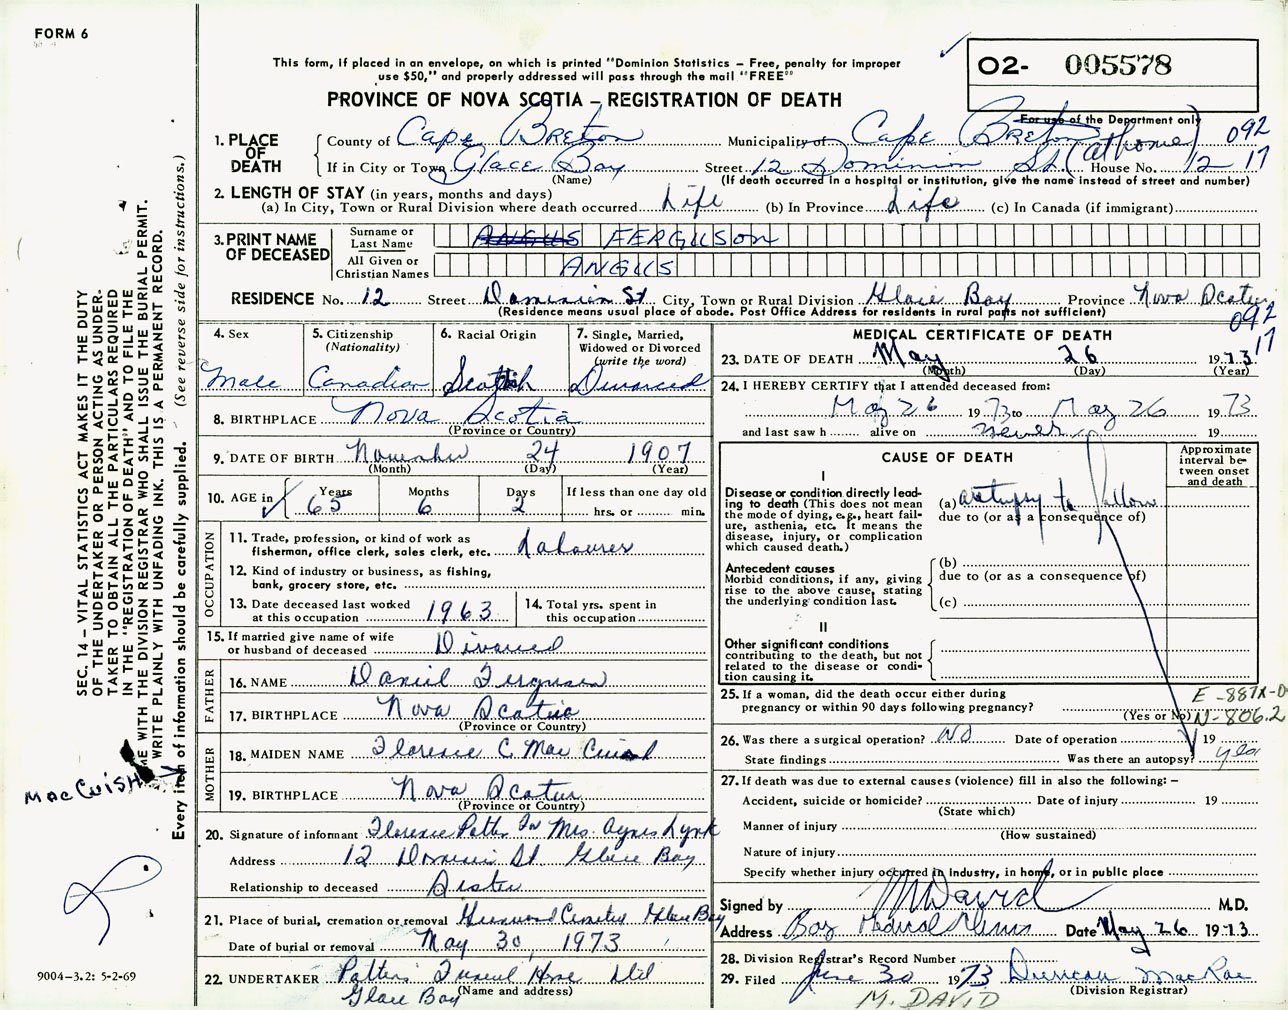 FORM 6
This form, if placed in an envelope, on which is printed "Dominion Statistics – Free, penalty for improper
use $50," and properly addressed will pass through the mail "FREE"
PROVINCE OF NOVA SCOTIA – REGISTRATION OF DEATH
O2- 005578
For use of the Department only
1. PLACE OF DEATH
County of Cape Breton Municipality of Cape Breton 092
If in City or Town Glace Bay Street 12 Dominion St. (at home) House No. 12 17
(Name) (If death occurred in a hospital or institution, give the name instead of street and number)
2. LENGTH OF STAY (in years, months and days)
(a) In City, Town or Rural Division where death occurred Life (b) In Province Life (c) In Canada (if immigrant)
3. PRINT NAME OF DECEASED
Surname or Last Name ANGUS FERGUSON
All Given or Christian Names ANGUS
RESIDENCE No. 12 Street Dominion St City, Town or Rural Division Glace Bay Province Nova Scotia
(Residence means usual place of abode. Post Office Address for residents in rural parts not sufficient)
092
17
4. Sex Male
5. Citizenship (Nationality) Canadian
6. Racial Origin Scottish
7. Single, Married, Widowed or Divorced (write the word) Divorced
8. BIRTHPLACE Nova Scotia
(Province or Country)
9. DATE OF BIRTH November 24 1907
(Month) (Day) (Year)
10. AGE in Years Months Days If less than one day old
65 6 2 hrs. or min.
OCCUPATION
11. Trade, profession, or kind of work as
fisherman, office clerk, sales clerk, etc. Labourer
12. Kind of industry or business, as fishing,
bank, grocery store, etc.
13. Date deceased last worked
at this occupation 1963
14. Total yrs. spent in
this occupation
15. If married give name of wife
or husband of deceased Divorced
FATHER
16. NAME Daniel Ferguson
17. BIRTHPLACE Nova Scotia
(Province or Country)
MOTHER
18. MAIDEN NAME Florence C. Mac
19. BIRTHPLACE Nova Scotia
(Province or Country)
20. Signature of informant Florence Patten for Mrs. Agnes Lynk
Address 12 Dominion St Glace Bay
Relationship to deceased Sister
21. Place of burial, cremation or removal Greenwood Cemetery Glace Bay
Date of burial or removal May 30 1973
22. UNDERTAKER Patten Funeral Home Ltd
(Name and address)
Glace Bay
MEDICAL CERTIFICATE OF DEATH
23. DATE OF DEATH May 26 1973
(Month) (Day) (Year)
24. I HEREBY CERTIFY that I attended deceased from:
May 26 1973 to May 26 1973
and last saw h alive on never 19
CAUSE OF DEATH
Approximate interval between onset and death
I
Disease or condition directly lead-
ing to death (This does not mean
the mode of dying, e.g., heart fail-
ure, asthenia, etc. It means the
disease, injury, or complication
which caused death.)
(a) autopsy to follow
due to (or as a consequence of)
Antecedent causes
Morbid conditions, if any, giving
rise to the above cause, stating
the underlying condition last.
(b)
due to (or as a consequence of)
(c)
II
Other significant conditions
contributing to the death, but not
related to the disease or condi-
tion causing it.
25. If a woman, did the death occur either during
pregnancy or within 90 days following pregnancy?
(Yes or No)
N-806.2
26. Was there a surgical operation? NO Date of operation 19
State findings Was there an autopsy? yes
27. If death was due to external causes (violence) fill in also the following: –
Accident, suicide or homicide? Date of injury 19
(State which)
Manner of injury
(How sustained)
Nature of injury
Specify whether injury occurred in industry, in home, or in public place
Signed by M David M.D.
Address Bay Medical Date May 26 1973
28. Division Registrar's Record Number
29. Filed June 30 1973 Duncan MacRae
(Division Registrar)
M. DAVID
SEC. 14 – VITAL STATISTICS ACT MAKES IT THE DUTY
OF THE UNDERTAKER OR PERSON ACTING AS UNDER-
TAKER TO OBTAIN ALL THE PARTICULARS REQUIRED
IN THE "REGISTRATION OF DEATH" AND TO FILE THE
ME WITH THE DIVISION REGISTRAR WHO SHALL ISSUE THE BURIAL PERMIT.
WRITE PLAINLY WITH UNFADING INK. THIS IS A PERMANENT RECORD.
Every item of information should be carefully supplied. (See reverse side for instructions.)
MACCUISH
9004–3.2: 5-2-69